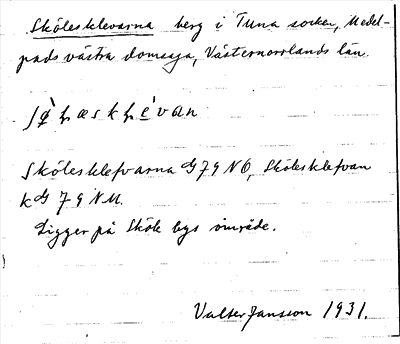 Skölesklevarna berg i Tuna socken, Medel-
pads västra domsaga, Västernorrlands län
Skölesklefvarna G 79 NÖ, Skölesklefvan
k G 79 NM.
Ligger på Sköle bys område.
Valter Jansson 1931.